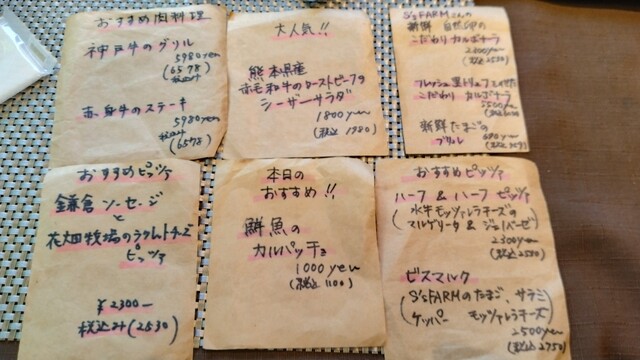 おすすめ肉料理
神戸牛のグリル
5980yen
(6578)
税込み
赤身牛のステーキ
5980yen
税込み
(6578)
大人気!!
熊本県産
赤毛和牛のローストビーフの
シーザーサラダ
1800yen
(税込 1980)
S'sFARMさんの
新鮮 自然卵の
こだわり カルボナーラ
2300yen
(税込2530)
フレッシュ黒トリュフをのせた
こだわり カルボナーラ
5500yen
新鮮たまごの
プリン
690yen
おすすめピッツァ
鎌倉ソーセージ
と
花畑牧場のラクレットチーズ
ピッツァ
¥2300-
税込み(2530)
本日の
おすすめ!!
鮮魚の
カルパッチョ
1000yen
(税込1100)
おすすめピッツァ
ハーフ&ハーフ ピッツァ
(水牛モッツァレラチーズの
マルゲリータ & ジェノベーゼ)
2300yen
(税込2530)
ビスマルク
(S'sFARMのたまご、サラミ
ケッパー モッツァレラチーズ)
2500yen
(税込2750)